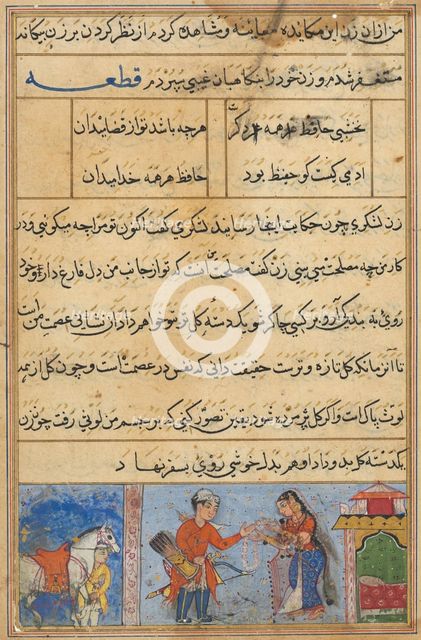 من از ان زن این مکایده معاینه و مشاهده کردم از نظر کردن بر زن بیکانه
مستغفر شدم و زن خود را بنکاهبان غیبی سپردم قطعه
نخشبی حافظ همه دکر
هرچه باشد نواز قضا یدان
ادمی کیست کو حفیظ بود
حافظ هرهمه خدا یدان
زن لشکری چون حکایت اینجا رسانید لشکری کفت اکنون تو مرا چه میکویی و در
کار من چه مصلحت می بینی زن کفت مصلحت من انست که تو از جانب من دل فارغ دار و خود
روی به بندکی آرو بر کسی چاکر شو یک دسته کل تر تو خواهم داد ان نشانی عصمت من است
تا آنزمانکه کل تازه و ترست حقیقت دانی که نفس من در عصمت است و چون کل از همه
لوث پاک است واکر کل پژمرده شود یقین تصور کنی که بر جسم من لوثی رفت چون زن
یکدسته کل بدو داد او هم بدل خوشی روی بسفر نهاد